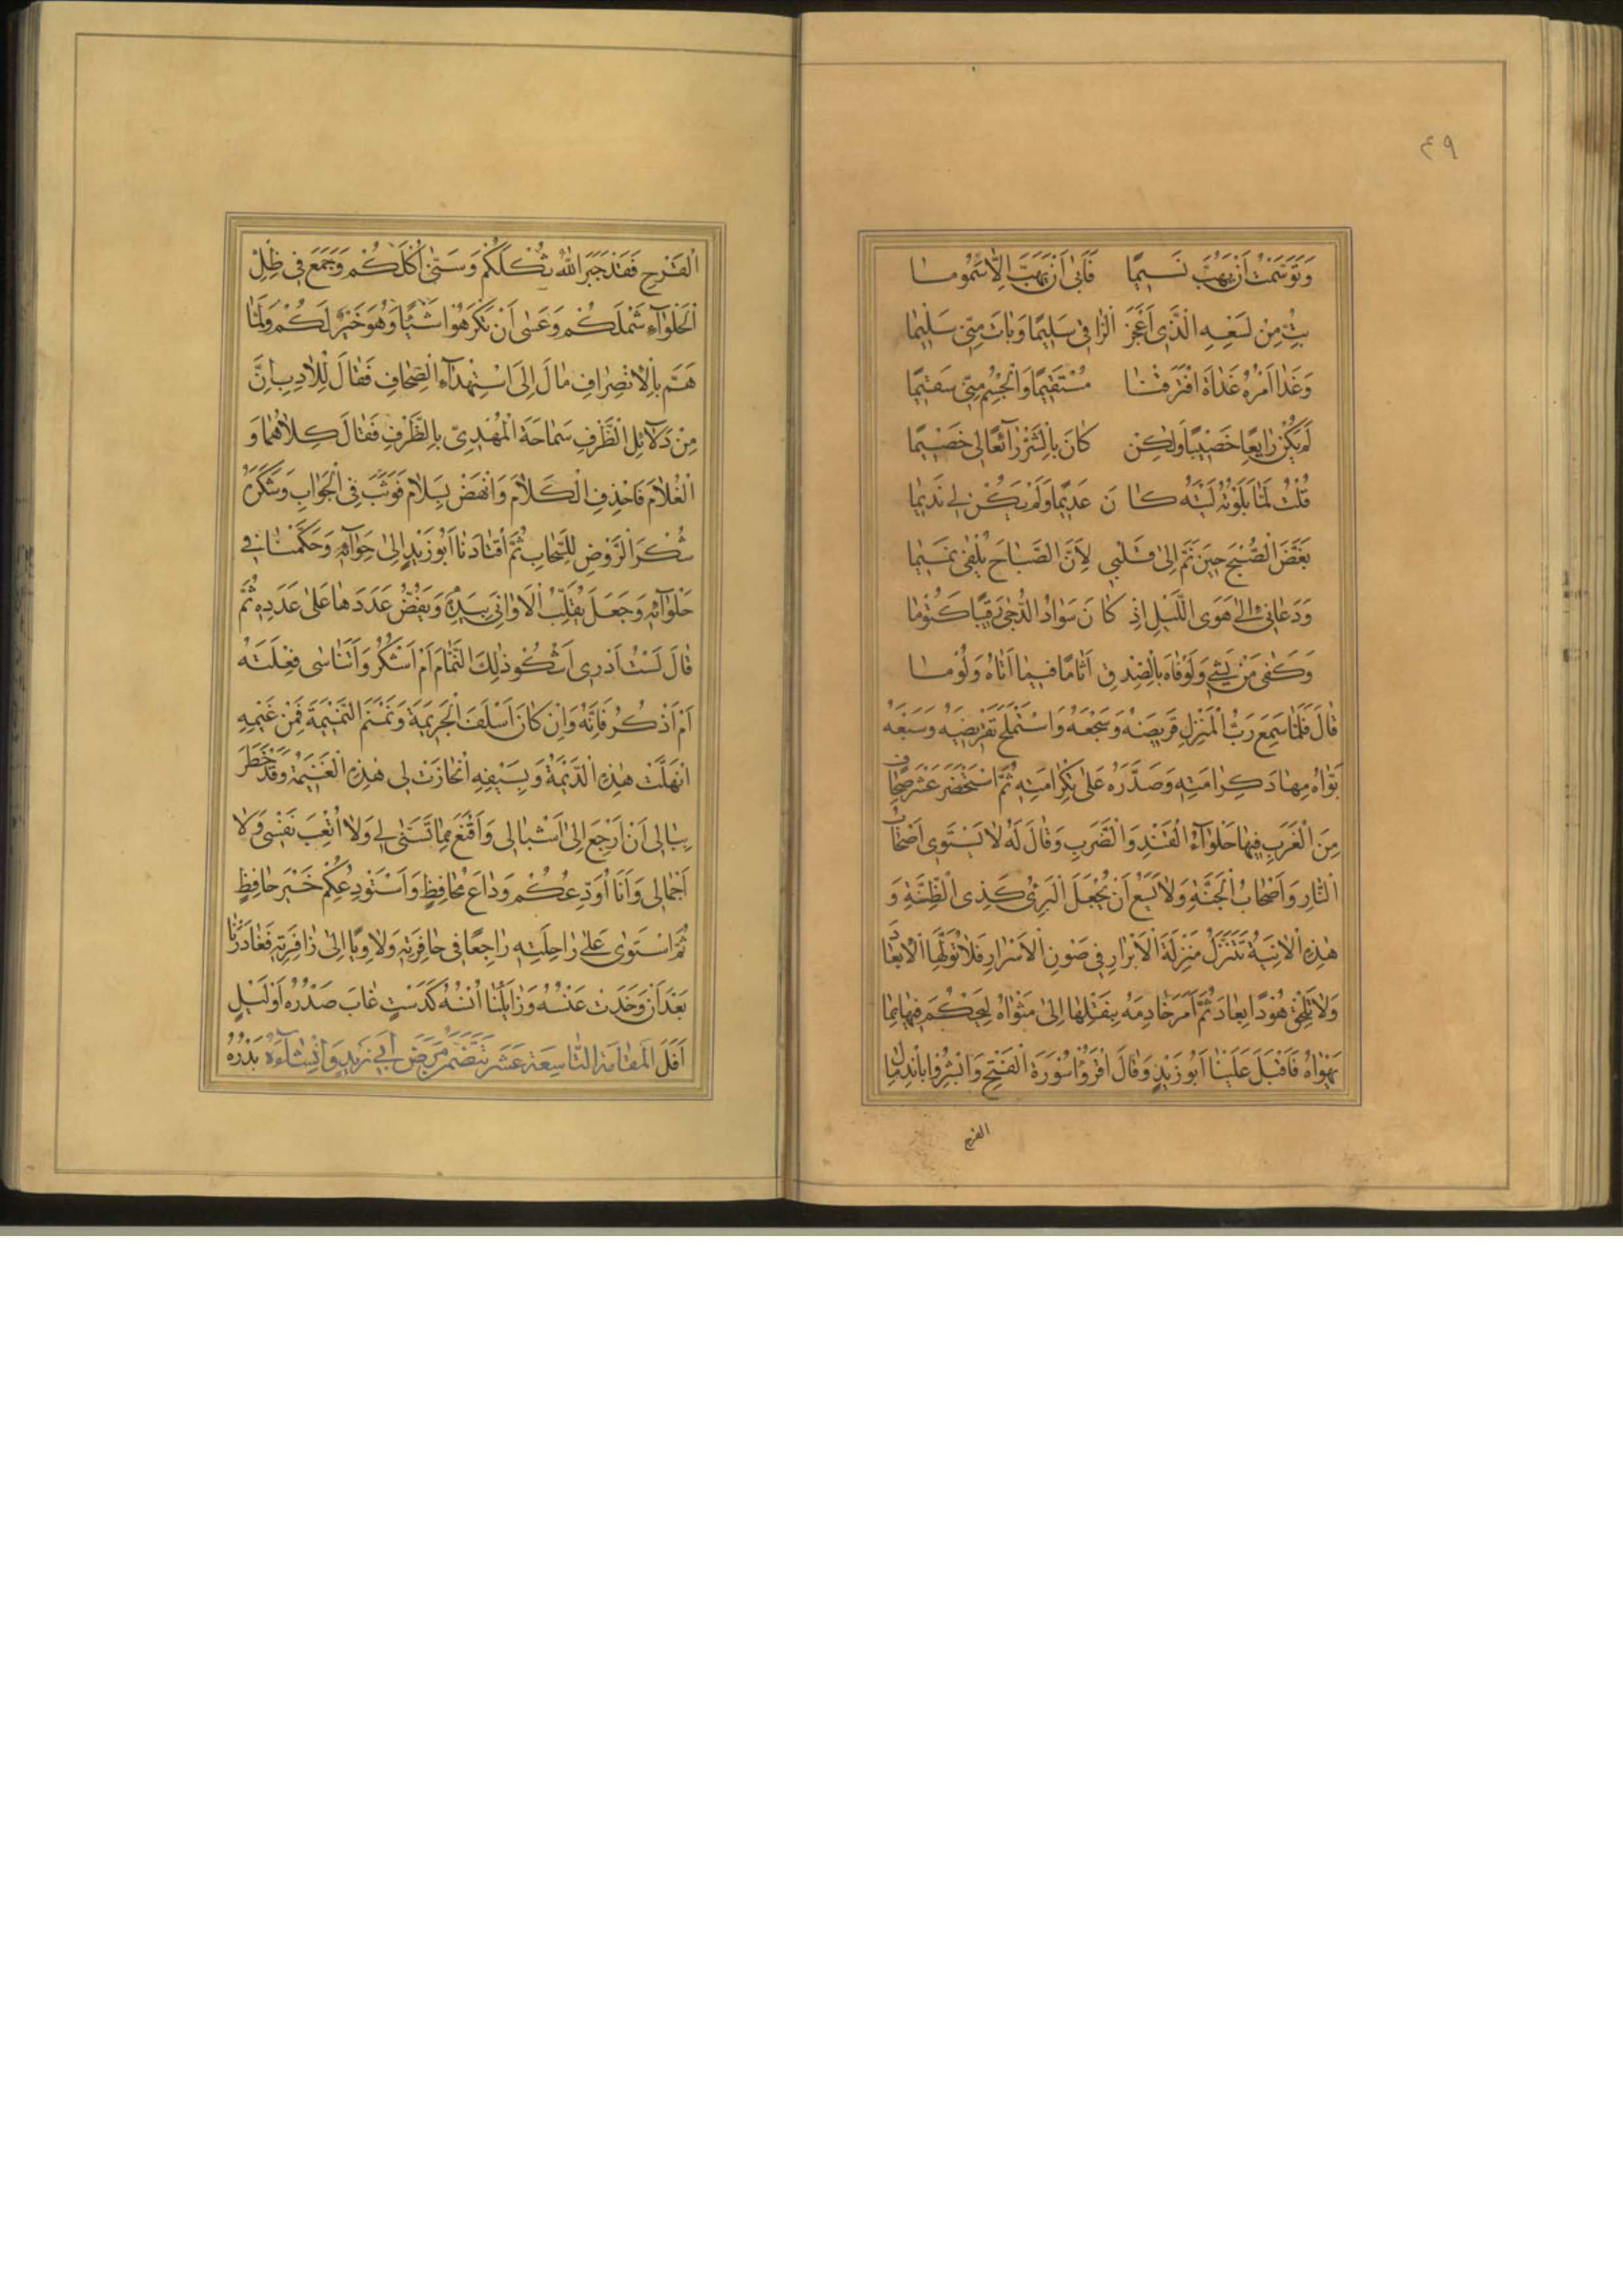 ٤٩
وَتَوَسَّمْتُ اَنْ يَهُبَّ نَسِيمًا فَاَبٰى اَنْ يَهُبَّ اِلَّا سَمُومًا
بِتُّ مِنْ لَسْعِهِ الَّذِى اَعْجَزَ الرَّاقِى سَلِيمًا وَبَاتَ مِنِّى سَلِيمًا
وَغَدَا اَمْرُهُ غَدَاةَ افْتَرَقْنَا مُسْتَقِيمًا وَالْجِسْمُ مِنِّى سَقِيمًا
لَمْ يَكُنْ رَايِعًا خَصِيبًا وَلٰكِنْ كَانَ بِالشَّرِّ رَآئِعًا لِى خَصِيمًا
قُلْتُ لَمَّا بَلَوْتُهُ لَيْتَهُ كَانَ عَدِيمًا وَلَمْ يَكُنْ لِى نَدِيمًا
بَغَّضَ الصُّبْحَ حِينَ نَمَّ اِلٰى قَلْبِى لِاَنَّ الصَّبَاحَ يُلْفٰى نَمِيمًا
وَدَعَانِى اِلٰى هَوَى اللَّيْلِ اِذْ كَانَ سَوَادُ الدُّجٰى رَقِيبًا كَتُومًا
وَكَفٰى مَنْ يَشِى وَلَوْ فَاهَ بِالصِّدْقِ اَثَامًا فِيمَا اَتَاهُ وَلُؤْمًا
قَالَ فَلَمَّا سَمِعَ رَبُّ الْمَنْزِلِ قَرِيضَهُ وَسَجْعَهُ وَاسْتَمْلَحَ تَقْرِيضَهُ وَسَبْعَهُ
بَوَّاَهُ مِهَادَ كَرَامَتِهِ وَصَدَّرَهُ عَلٰى تَكْرِمَتِهِ ثُمَّ اسْتَحْضَرَ عَشْرَ صِحَافٍ
مِنَ الْغَرَبِ فِيهَا حَلْوَآءُ الْقَنْدِ وَالضَّرَبِ وَقَالَ لَهُ لَا يَسْتَوِى اَصْحَابُ
النَّارِ وَاَصْحَابُ الْجَنَّةِ وَلَا يَسَعُ اَنْ يُجْعَلَ الْبَرِئُ كَذِى الظِّنَّةِ وَ
هٰذِهِ الْاٰنِيَةُ تَتَنَزَّلُ مَنْزِلَةَ الْاَبْرَارِ فِى صَوْنِ الْاَسْرَارِ فَلَا تُوَلِّهَا الْاِبْعَادَ
وَلَا تُلْحِقْ هُودًا بِعَادَ ثُمَّ اَمَرَ خَادِمَهُ بِنَقْلِهَا اِلٰى مَثْوَاهُ لِيَحْكُمَ فِيهَا بِمَا
يَهْوَاهُ فَاَقْبَلَ عَلَيْنَا اَبُو زَيْدٍ وَقَالَ اقْرَؤُا سُورَةَ الْفَتْحِ وَابْشِرُوا بِانْدِمَالِ
القرح
الْقَرْحِ فَقَدْ جَبَرَ اللّٰهُ ثُكْلَكُمْ وَسَنّٰى اُكْلَكُمْ وَجَمَعَ فِى ظِلِّ
الْحَلْوَآءِ شَمْلَكُمْ وَعَسٰى اَنْ تَكْرَهُوا شَيْئًا وَهُوَ خَيْرٌ لَكُمْ وَلَمَّا
هَمَّ بِالْاِنْصِرَافِ مَالَ اِلَى اسْتِهْدَآءِ الصِّحَافِ فَقَالَ لِلْاٰدِبِ اِنَّ
مِنْ دَلَآئِلِ الظَّرْفِ سَمَاحَةَ الْمُهْدِىْ بِالظَّرْفِ فَقَالَ كِلَاهُمَا وَ
الْغُلَامَ فَاحْذِفِ الْكَلَامَ وَانْهَضْ بِسَلَامٍ فَوَثَبَ فِى الْجَوَابِ وَشَكَرَهُ
شُكْرَ الرَّوْضِ لِلسَّحَابِ ثُمَّ اقْتَادَنَا اَبُو زَيْدٍ اِلٰى حِوَآئِهِ وَحَكَّمَنَا فِى
حَلْوَآئِهِ وَجَعَلَ يُقَلِّبُ الْاَوَانِىَ بِيَدِهِ وَيَفُضُّ عَدَدَهَا عَلٰى عَدَدِهِ ثُمَّ
قَالَ لَسْتُ اَدْرِى اَشْكُو ذٰلِكَ النَّمَّامَ اَمْ اَشْكُرُ وَاَتَنَاسٰى فِعْلَتَهُ
اَمْ اَذْكُرُ فَاِنَّهُ وَاِنْ كَانَ اَسْلَفَ الْجَرِيمَةَ وَنَمْنَمَ النَّمِيمَةَ فَمِنْ غَيْمِهِ
انْهَلَّتْ هٰذِهِ الدِّيمَةُ وَبِسَيْفِهِ انْحَازَتْ لِى هٰذِهِ الْغَنِيمَةُ وَقَدْ خَطَرَ
بِبَالِى اَنْ اَرْجِعَ اِلٰى اَشْبَالِى وَاَقْنَعَ بِمَا تَسَنّٰى لِى وَلَا اُتْعِبَ نَفْسِى وَلَا
اَجْمَالِى وَاَنَا اُوَدِّعُكُمْ وَدَاعَ مُحَافِظٍ وَاَسْتَوْدِعُكُمْ خَيْرَ حَافِظٍ
ثُمَّ اسْتَوٰى عَلٰى رَاحِلَتِهِ رَاجِعًا فِى حَافِرَتِهِ وَلَاوِيًا اِلٰى زَافِرَتِهِ فَغَادَرَنَا
بَعْدَ اَنْ وَخَدَتْ عَنْسُهُ وَزَايَلَنَا اُنْسُهُ كَدَسْتٍ غَابَ صَدْرُهُ اَوْ لَيْلٍ
اَفَلَ الْمَقَامَةُ التَّاسِعَةَ عَشَرَ تَتَضَمَّنُ مَرَضَ اَبِى زَيْدٍ وَ بَدْرُهُ